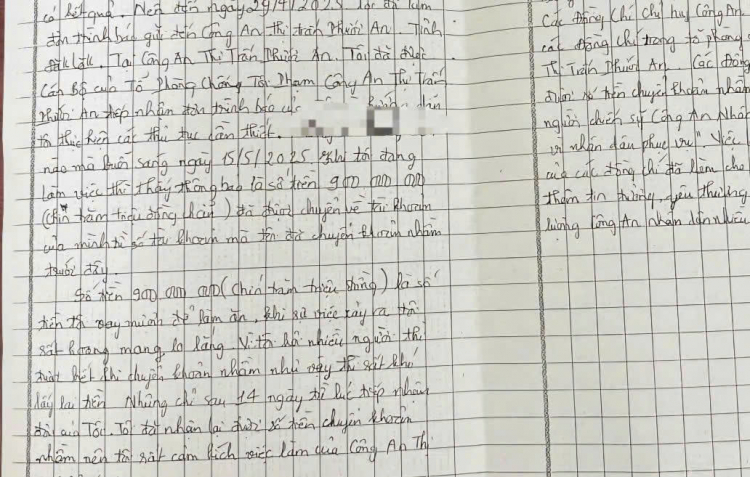 có kết quả. Nên đến ngày 29/4/2025 tôi đã làm
đơn trình báo gửi đến Công An thị trấn Phước An. Tỉnh
Đắk Lắk. Tại Công An Thị Trấn Phước An. Tôi đã được
Cán Bộ của Tổ Phòng Chống Tội Phạm Công An Thị Trấn
Phước An tiếp nhận đơn trình báo
tôi thực hiện các thủ tục cần thiết.
nào mà buổi sáng ngày 15/5/2025 khi tôi đang
làm việc thì thấy thông báo là số tiền 900 000 000
(chín trăm triệu đồng chẵn) đã được chuyển về tài khoản
của mình từ số tài khoản mà tôi đã chuyển khoản nhầm
trước đây.
Số tiền 900 000 000 (Chín trăm triệu đồng) là số
tiền tôi vay mượn để làm ăn, khi sự việc xảy ra tôi
rất hoang mang lo lắng. Vì tôi hỏi nhiều người thì
được biết khi chuyển khoản nhầm như vậy thì rất khó
lấy lại tiền. Nhưng chỉ sau 14 ngày từ lúc tiếp nhận
đơn của Tôi. Tôi đã nhận lại được số tiền chuyển khoản
nhầm nên tôi rất cảm kích việc làm của Công An Thị
Các Đồng Chí chỉ huy Công An
các đồng chí trong tổ phòng
Thị Trấn Phước An. Các đồng
được số tiền chuyển khoản nhầm
người chiến sỹ Công An Nhân
vì nhân dân phục vụ". Việc
của các đồng chí đã làm cho
thêm tin tưởng, yêu thương
lượng Công An nhân dân nhiều